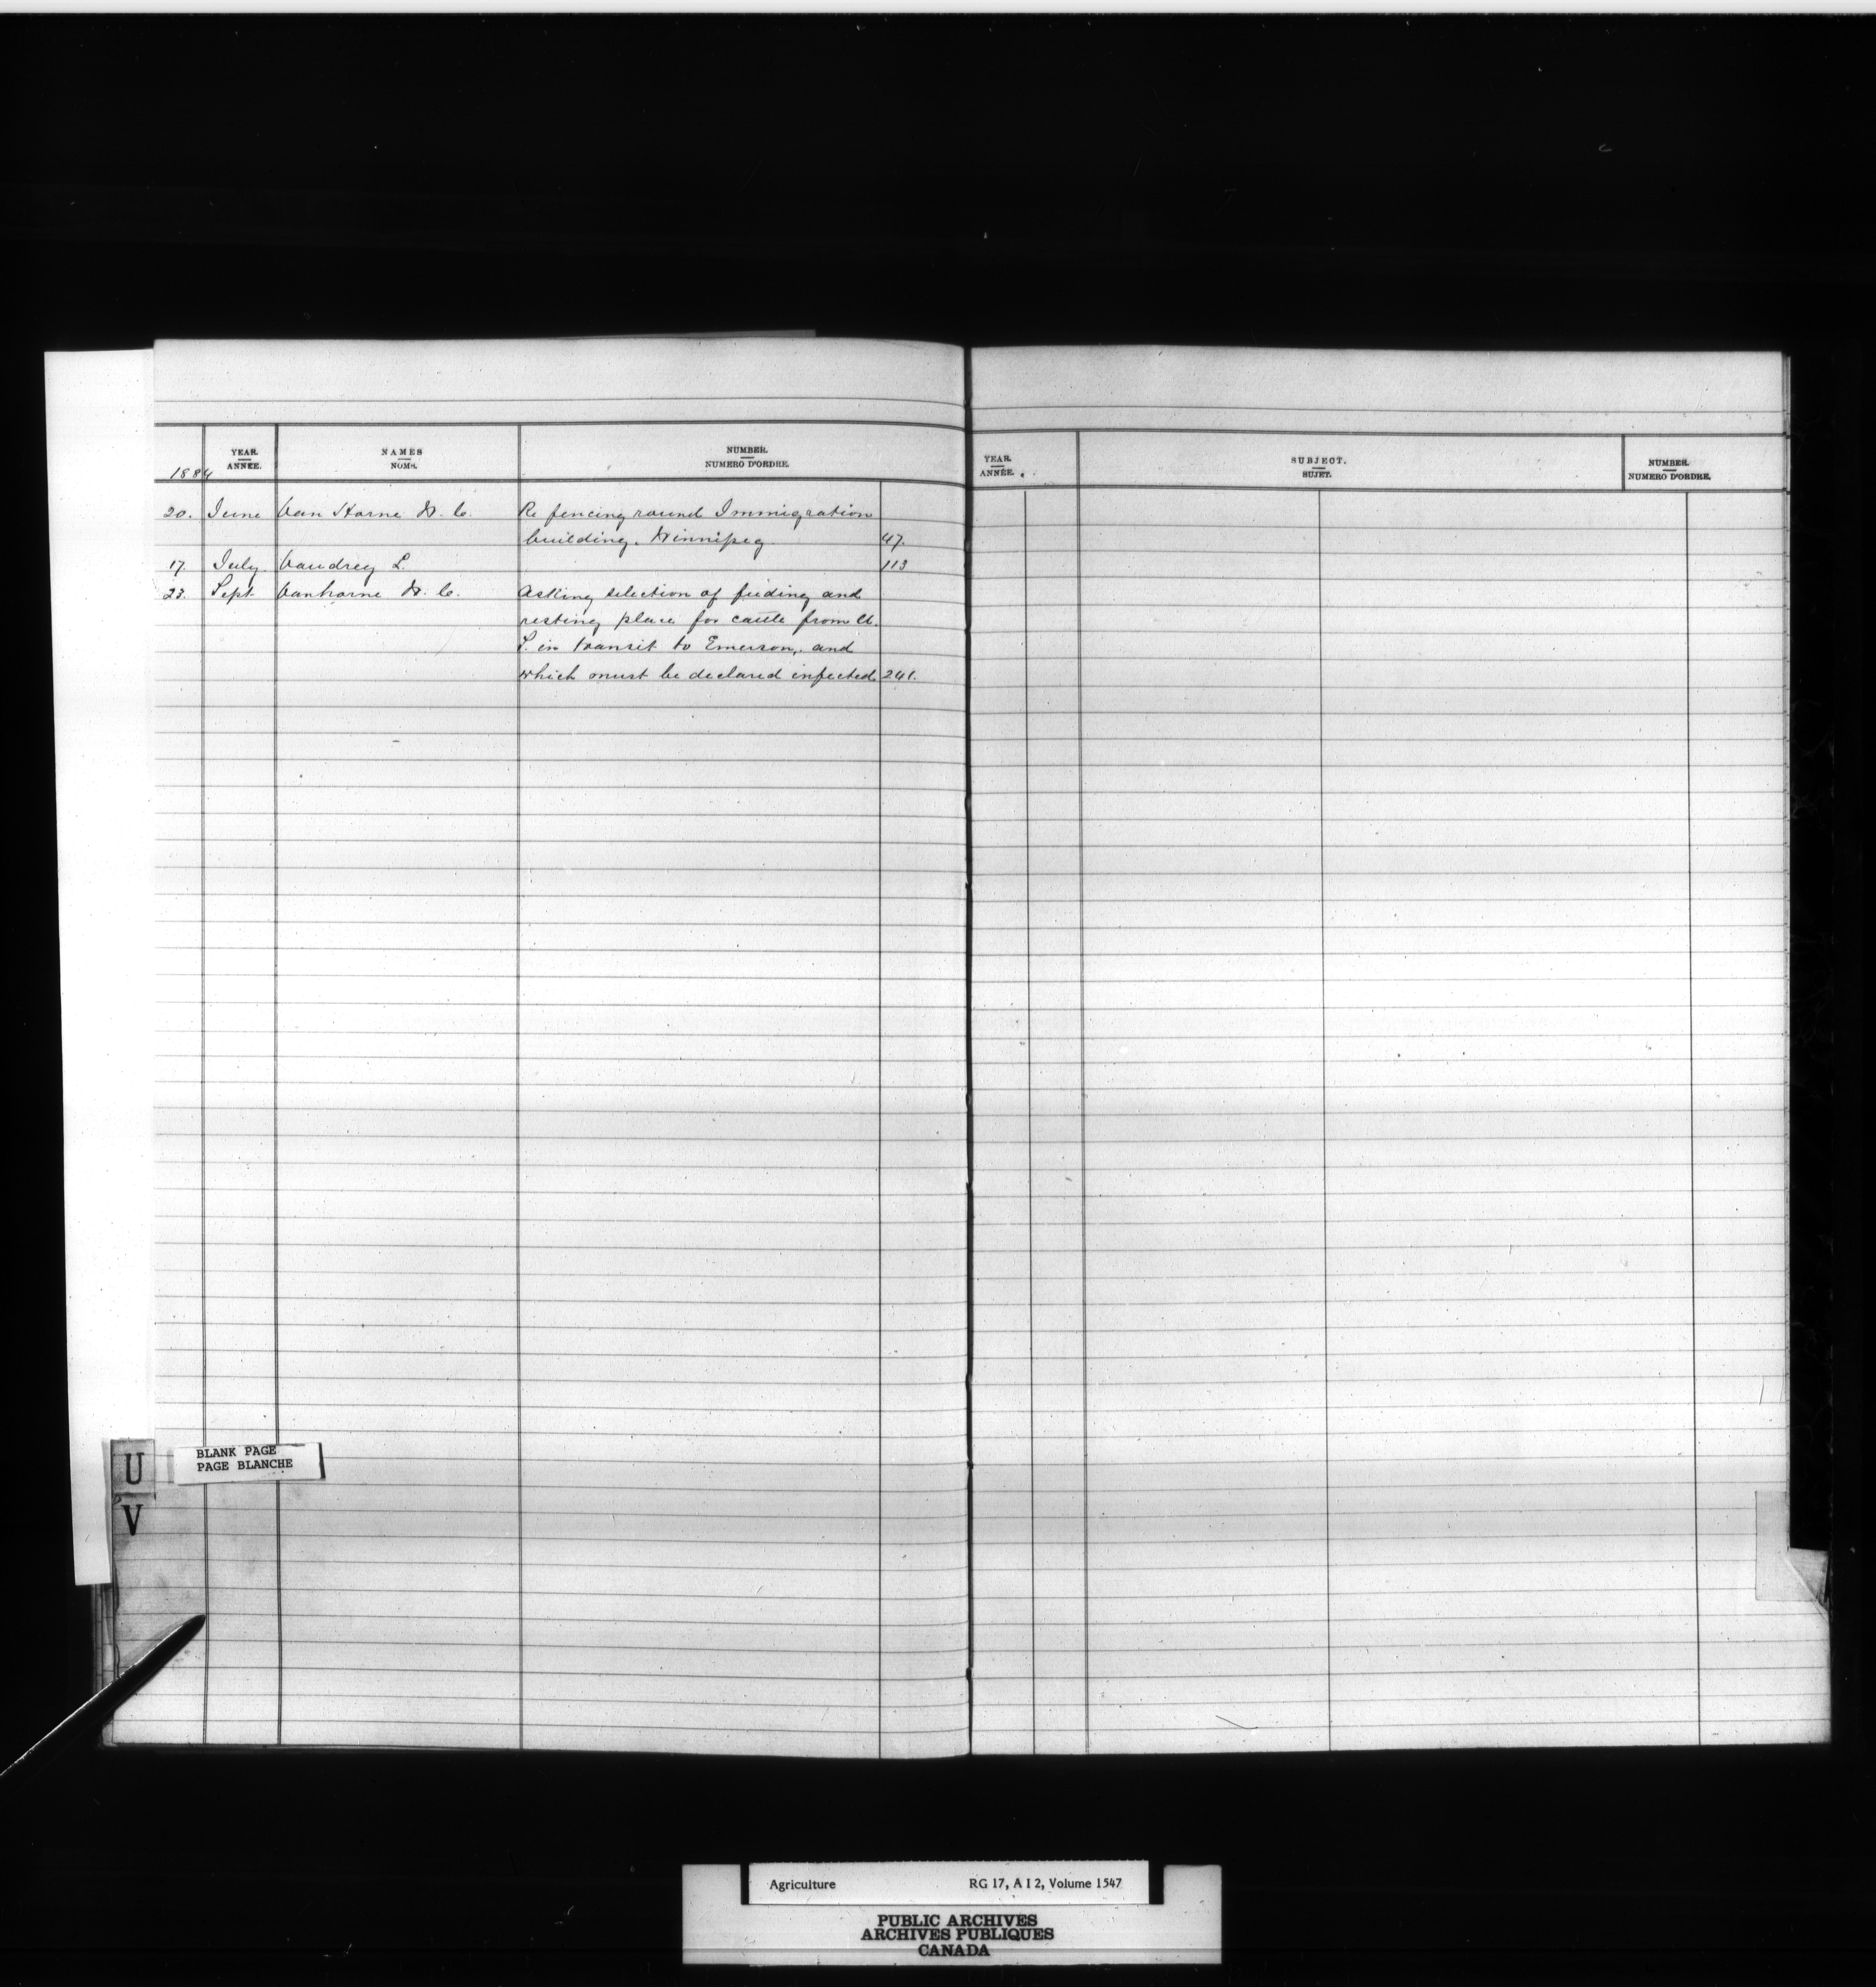 1884
YEAR.
ANNÉE.
NAMES
NOMS.
NUMBER.
NUMERO D'ORDRE.
20. June Van Horne W. C. Re fencing round Immigration
building. Winnipeg 47.
17. July Vaudrey L. 113
23. Sept Vanhorne W. C. Asking selection of feeding and
resting place for cattle from U.
S. in transit to Emerson, and
which must be declared infected. 241.
YEAR.
ANNÉE.
SUBJECT.
SUJET.
NUMBER.
NUMERO D'ORDRE.
U
V
BLANK PAGE
PAGE BLANCHE
Agriculture RG 17, A I 2, Volume 1547
PUBLIC ARCHIVES
ARCHIVES PUBLIQUES
CANADA